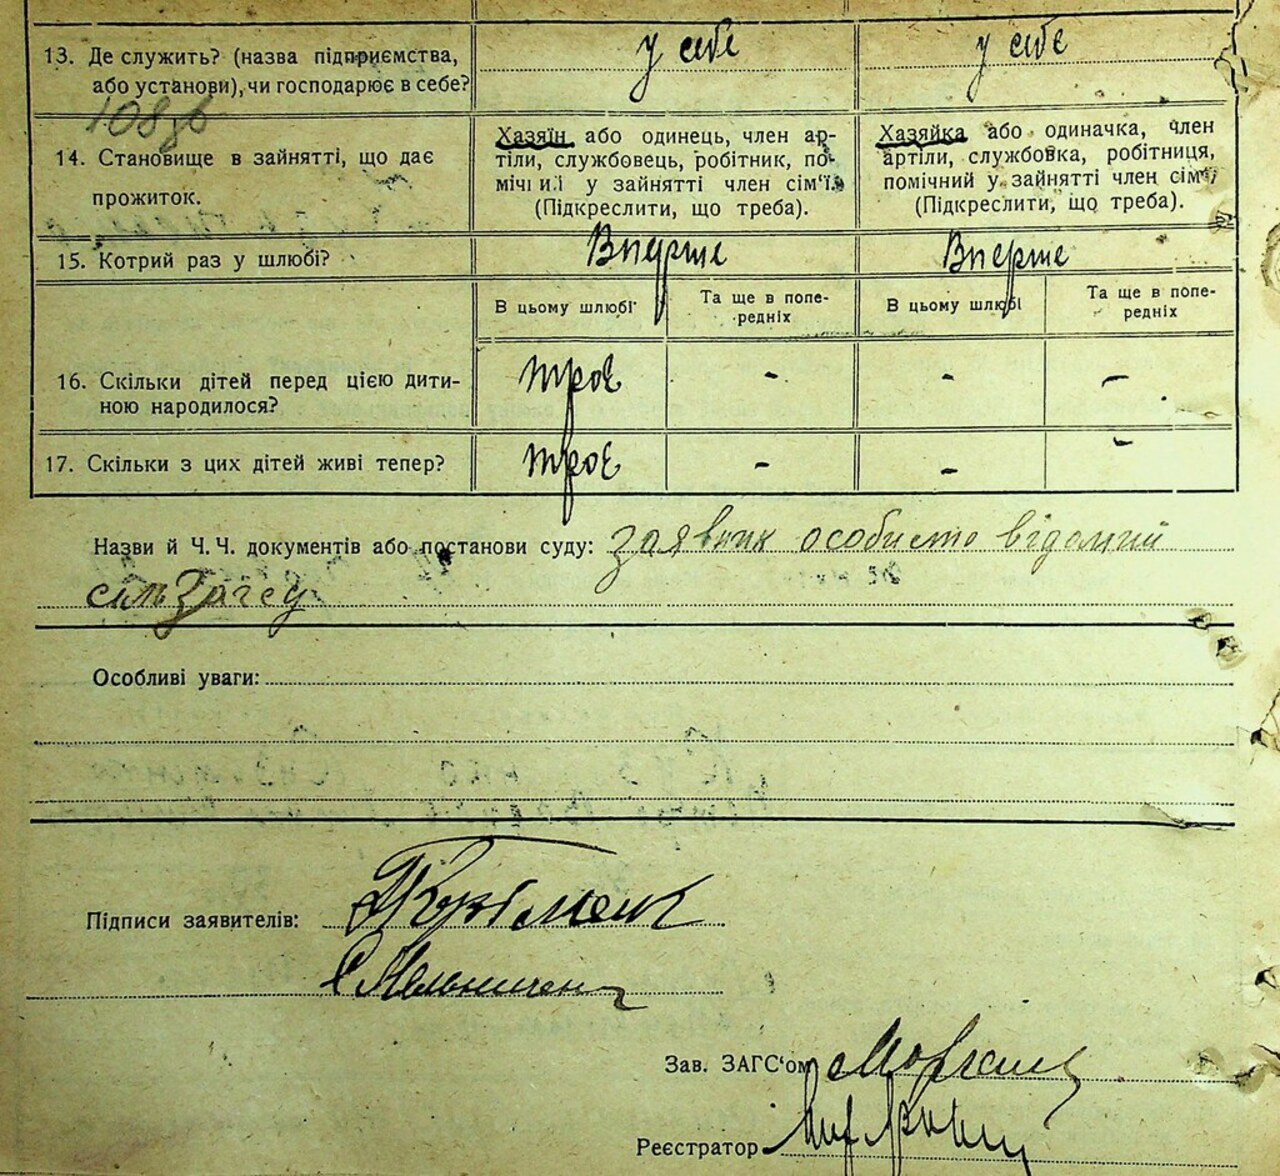 13. Де служить? (назва підприємства, або установи), чи господарює в себе?
у себе
у себе
108 зв
14. Становище в зайнятті, що дає прожиток.
Хазяїн або одинець, член ар-
тіли, службовець, робітник, по-
мічний у зайнятті член сім'ї.
(Підкреслити, що треба).
Хазяйка або одиначка, член
артіли, службовка, робітниця,
помічний у зайнятті член сім'ї
(Підкреслити, що треба).
15. Котрий раз у шлюбі?
Вперше
Вперше
В цьому шлюбі
Та ще в попе-
редніх
В цьому шлюбі
Та ще в попе-
редніх
16. Скільки дітей перед цією дити-
ною народилося?
троє - - -
17. Скільки з цих дітей живі тепер?
троє - - -
Назви й Ч. Ч. документів або постанови суду: заявник особисто відомий
сільЗагсу
Особливі уваги:
Підписи заявителів:
Зав. ЗАГС'ом
Реєстратор